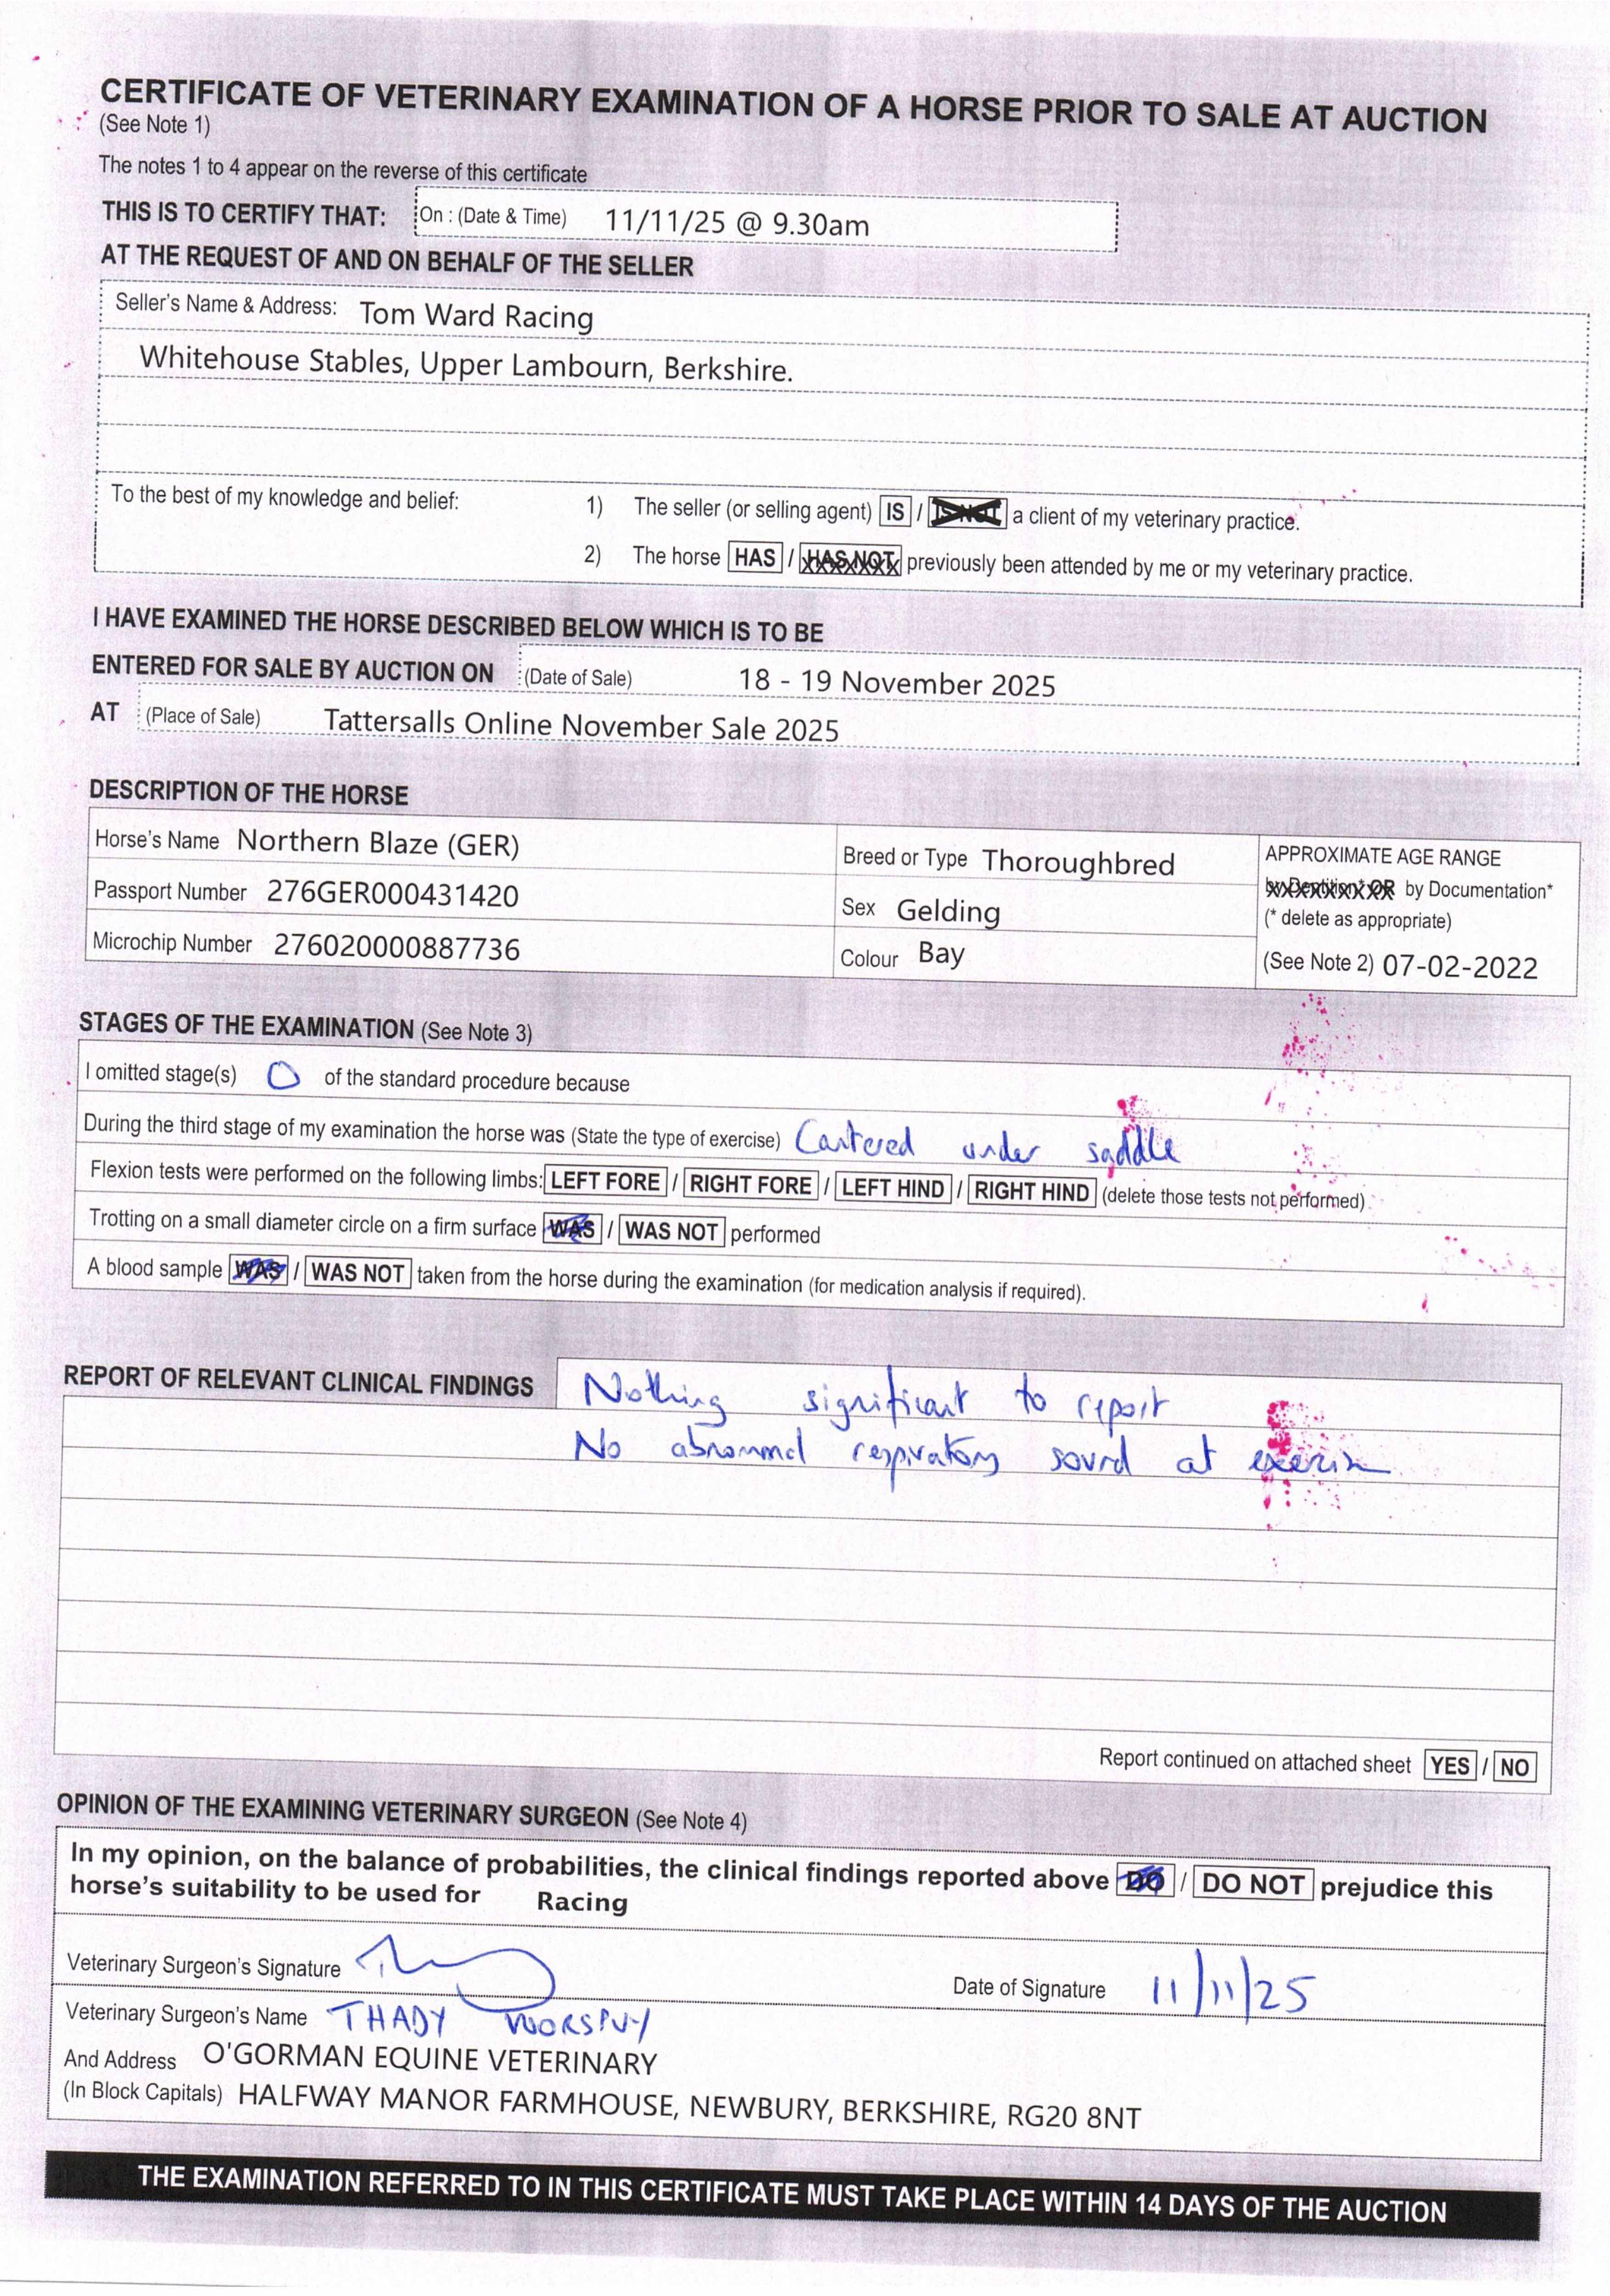 CERTIFICATE OF VETERINARY EXAMINATION OF A HORSE PRIOR TO SALE AT AUCTION
(See Note 1)
The notes 1 to 4 appear on the reverse of this certificate
THIS IS TO CERTIFY THAT: On : (Date & Time) 11/11/25 @ 9.30am
AT THE REQUEST OF AND ON BEHALF OF THE SELLER
Seller's Name & Address: Tom Ward Racing
Whitehouse Stables, Upper Lambourn, Berkshire.
To the best of my knowledge and belief: 1) The seller (or selling agent) IS / IS NOT a client of my veterinary practice.
2) The horse HAS / HAS NOT previously been attended by me or my veterinary practice.
I HAVE EXAMINED THE HORSE DESCRIBED BELOW WHICH IS TO BE
ENTERED FOR SALE BY AUCTION ON (Date of Sale) 18 - 19 November 2025
AT (Place of Sale) Tattersalls Online November Sale 2025
DESCRIPTION OF THE HORSE
Horse's Name Northern Blaze (GER)
Passport Number 276GER000431420
Microchip Number 276020000887736
Breed or Type Thoroughbred
Sex Gelding
Colour Bay
APPROXIMATE AGE RANGE
by Dentition* OR by Documentation*
(* delete as appropriate)
(See Note 2) 07-02-2022
STAGES OF THE EXAMINATION (See Note 3)
I omitted stage(s) O of the standard procedure because
During the third stage of my examination the horse was (State the type of exercise) Cantered under saddle
Flexion tests were performed on the following limbs: LEFT FORE / RIGHT FORE / LEFT HIND / RIGHT HIND (delete those tests not performed)
Trotting on a small diameter circle on a firm surface WAS / WAS NOT performed
A blood sample WAS / WAS NOT taken from the horse during the examination (for medication analysis if required).
REPORT OF RELEVANT CLINICAL FINDINGS Nothing significant to report
No abnormal respiratory sound at exercise
Report continued on attached sheet YES / NO
OPINION OF THE EXAMINING VETERINARY SURGEON (See Note 4)
In my opinion, on the balance of probabilities, the clinical findings reported above DO / DO NOT prejudice this
horse's suitability to be used for Racing
Veterinary Surgeon's Signature Date of Signature 11/11/25
Veterinary Surgeon's Name THADY
And Address O'GORMAN EQUINE VETERINARY
(In Block Capitals) HALFWAY MANOR FARMHOUSE, NEWBURY, BERKSHIRE, RG20 8NT
THE EXAMINATION REFERRED TO IN THIS CERTIFICATE MUST TAKE PLACE WITHIN 14 DAYS OF THE AUCTION